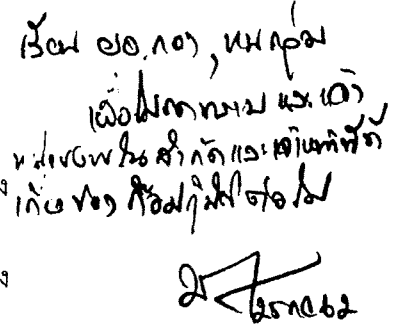 เรียน ผอ.กอง, หน.กลุ่ม
เพื่อโปรดทราบ และแจ้ง
หน่วยงานในสังกัดและเจ้าหน้าที่ที่
เกี่ยวข้อง ถือปฏิบัติต่อไป
25 กค 62